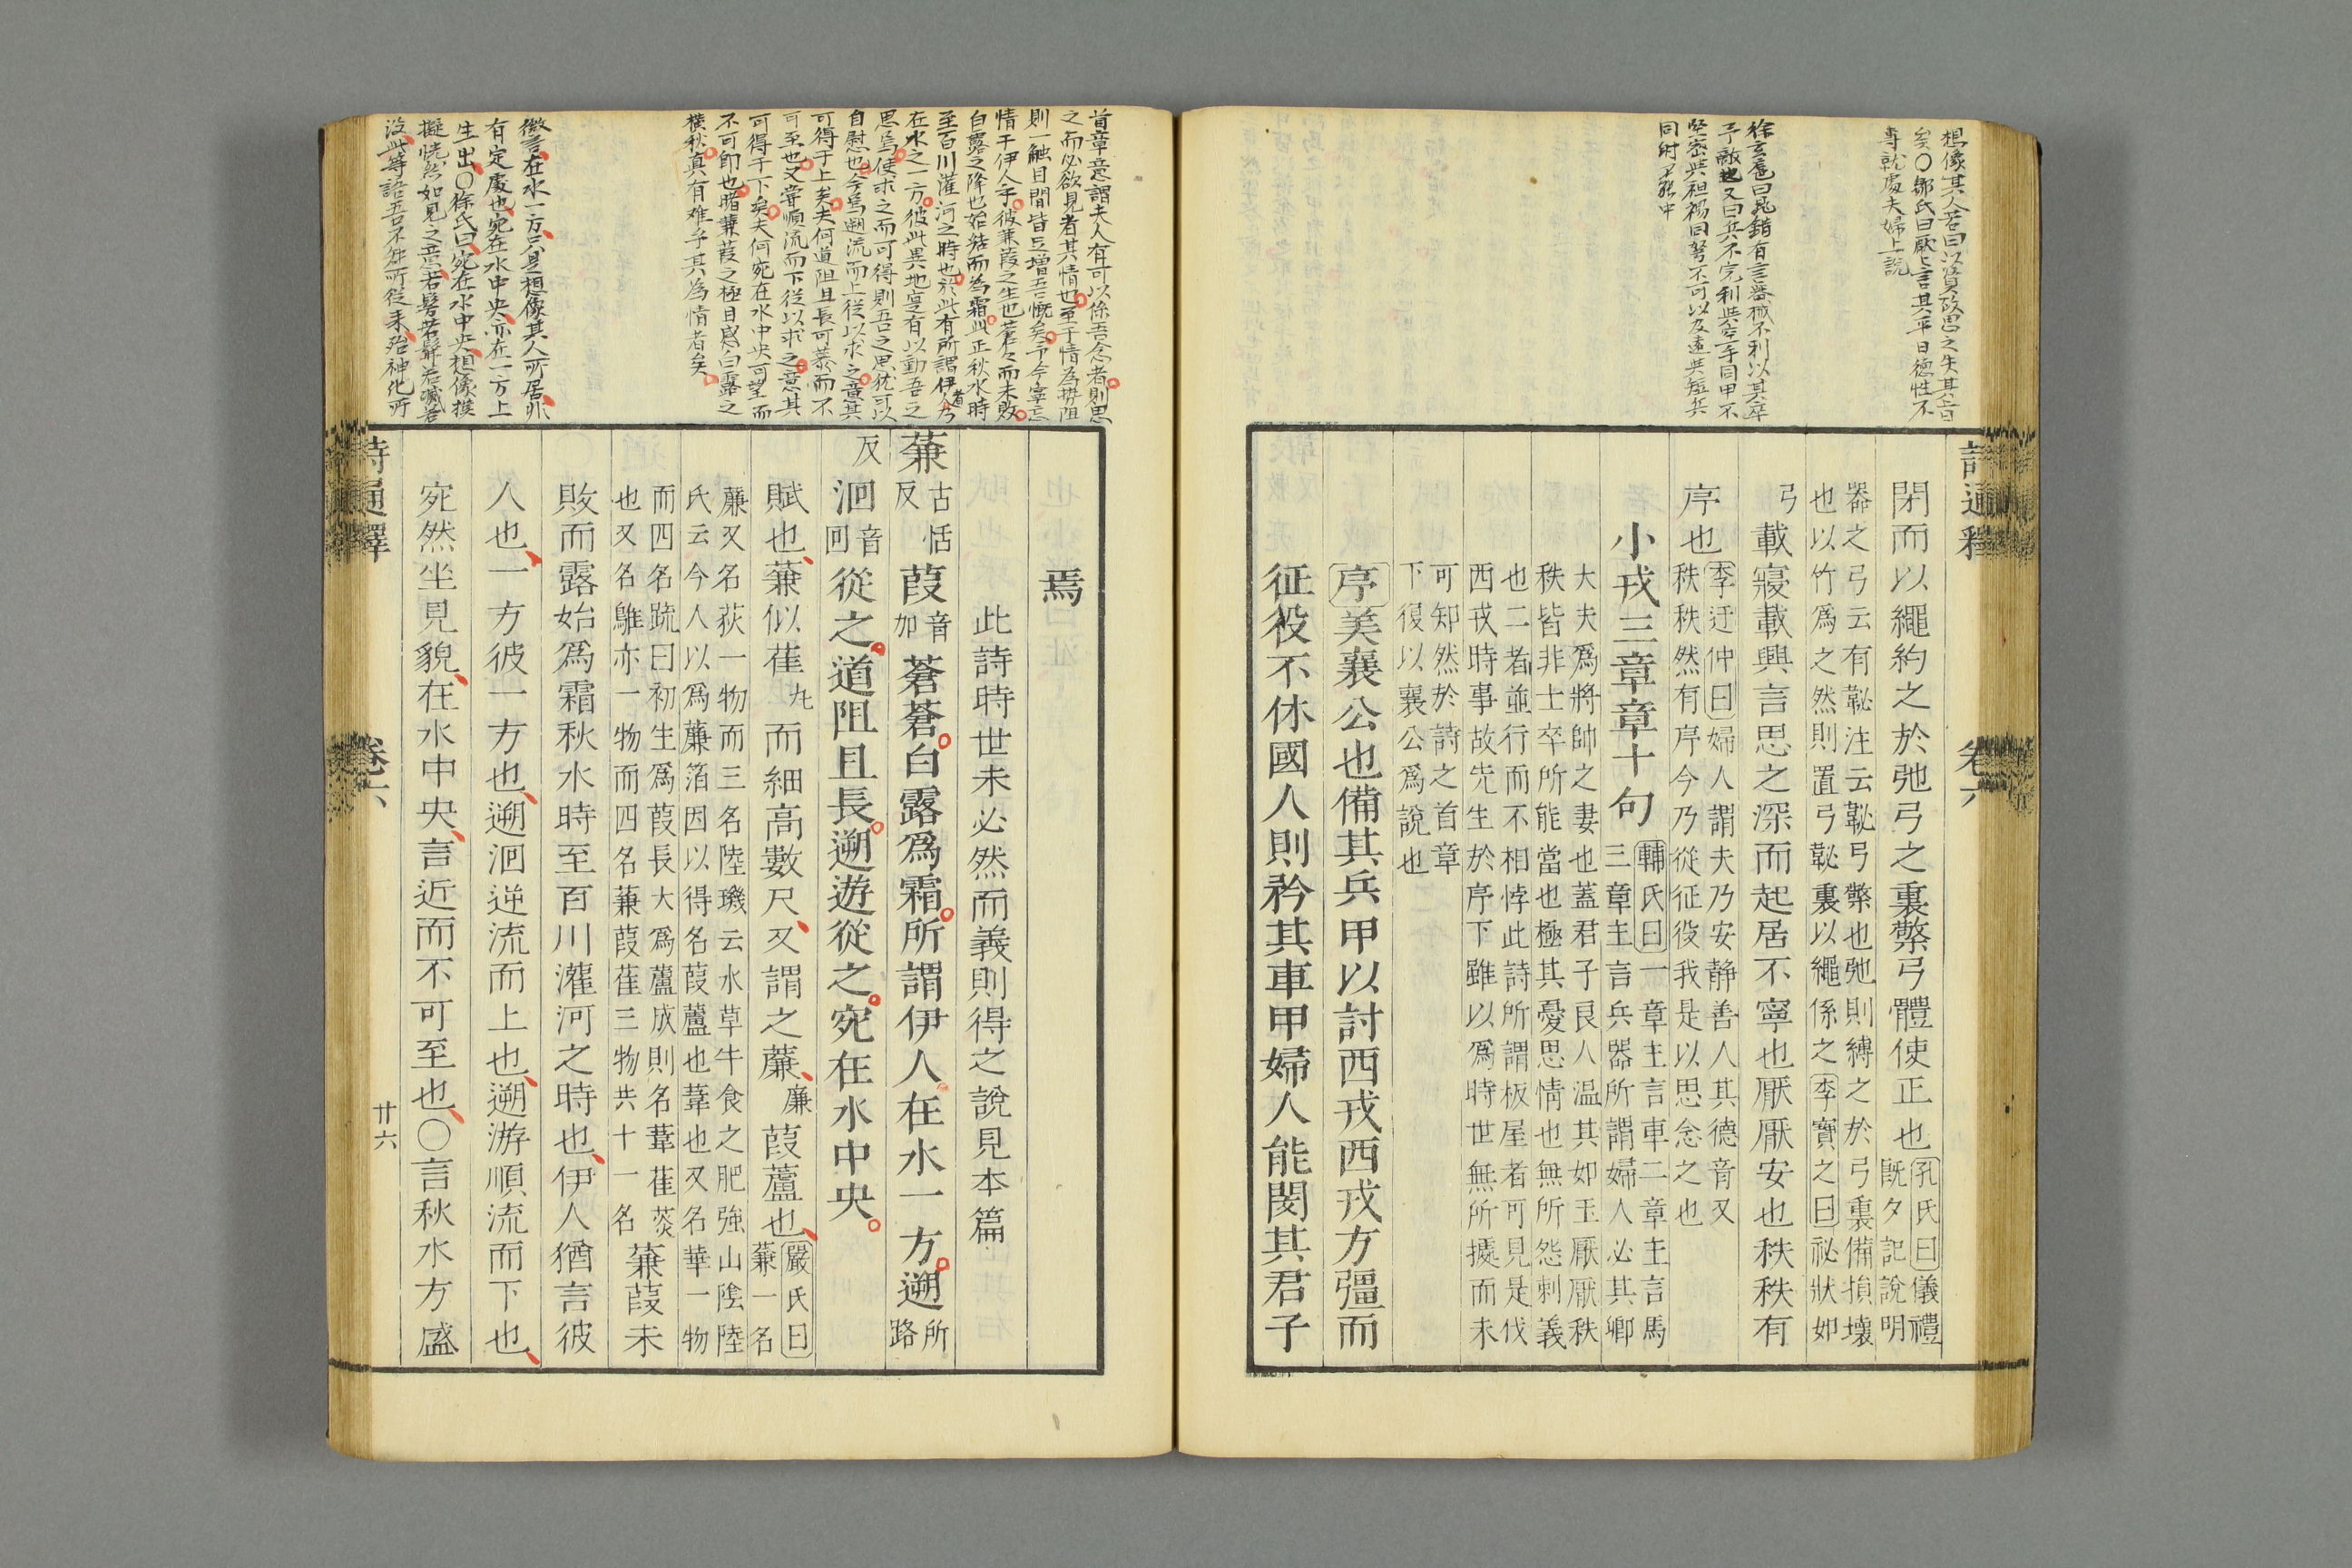 想像其人若曰
同射不能中
閉而以繩約之於弛弓之裏檠弓體使正也 孔氏曰儀禮
既夕記說明
器之弓云有䩛注云䩛弓檠也弛則縛之於弓裏備損壞
也以竹爲之然則置弓䩛裏以繩係之 李寶之曰祕狀如
弓
載寢載興言思之深而起居不寧也厭厭安也秩秩有
序也
李迂仲曰婦人謂夫乃安靜善人其德音又
秩秩然有序今乃從征役我是以思念之也
小戎三章章十句
輔氏曰一章主言車二章主言馬
三章主言兵器所謂婦人必其卿
大夫爲將帥之妻也蓋君子良人温其如玉厭厭秩
秩皆非士卒所能當也極其憂思情也無所怨刺義
也二者並行而不相悖此詩所謂板屋者可見是伐
西戎時事故先生於序下雖以爲時世無所據而未
可知然於詩之首章
下復以襄公爲說也
序美襄公也備其兵甲以討西戎西戎方彊而
征役不休國人則矜其車甲婦人能閔其君子
首章意謂夫人有可以係吾念者則思
之而必欲見者其情也至于情爲勢阻
則一觸目間皆足增吾慨矣予今寧忘
情于伊人乎彼蒹葭之生也蒼々而未敗
白露之降也始結而爲霜此正秋水時
至百川灌河之時也於此有所謂伊人者乃
在水之一方彼此異地寔有以動吾之
思焉使求之而可得則吾之思猶可以
自慰也今爲遡流而上從以求之意其
可得于上矣夫何道阻且長可慕而不
可至也又嘗順流而下從以求之意其
可得于下矣夫何宛在水中央可望而
不可即也睹蒹葭之極目感白露之
橫秋真有难乎其爲情者矣
微言在水一方只是想像其人所居非
有定處也宛在水中央亦在一方上
生出〇徐氏曰宛在水中央想像摸
擬恍然如見之意
焉
此詩時世未必然而義則得之說見本篇
蒹 古恬反 葭 音加 蒼蒼白露爲霜所謂伊人在水一方遡 所路
反 洄 音回 從之道阻且長遡遊從之宛在水中央
賦也蒹似萑 丸 而細高數尺又謂之薕 廉 葭蘆也 嚴氏曰
蒹一名
薕又名荻一物而三名陸璣云水草牛食之肥強山陰陸
氏云今人以爲薕箔因以得名葭蘆也葦也又名華一物
而四名疏曰初生爲葭長大爲蘆成則名葦萑菼
也又名鵻亦一物而四名蒹葭萑三物共十一名 蒹葭未
敗而露始爲霜秋水時至百川灌河之時也伊人猶言彼
人也一方彼一方也遡洄逆流而上也遡游順流而下也
宛然坐見貌在水中央言近而不可至也〇言秋水方盛
卷六
廿六